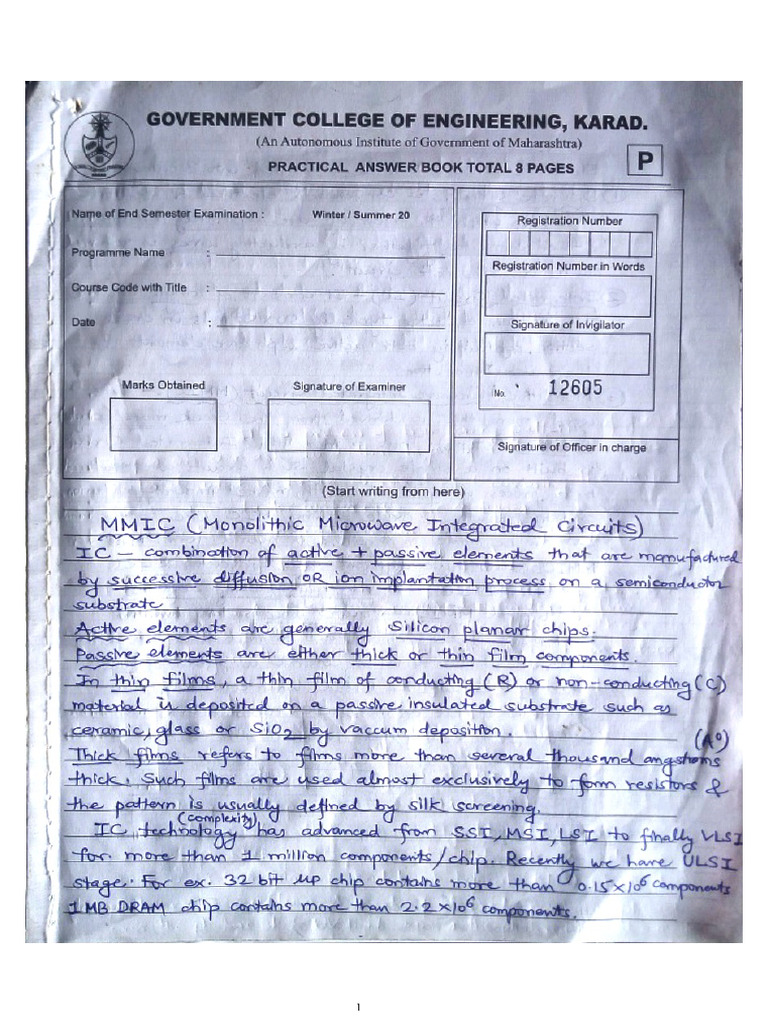 GOVERNMENT COLLEGE OF ENGINEERING, KARAD.
(An Autonomous Institute of Government of Maharashtra)
PRACTICAL ANSWER BOOK TOTAL 8 PAGES
P
Name of End Semester Examination : Winter / Summer 20
Programme Name :
Course Code with Title :
Date :
Registration Number
Registration Number in Words
Signature of Invigilator
No. 12605
Marks Obtained
Signature of Examiner
Signature of Officer in charge
(Start writing from here)
MMIC (Monolithic Microwave Integrated Circuits)
IC - combination of active + passive elements that are manufactured
by successive diffusion OR ion implantation process on a semiconductor
substrate
Active elements are generally Silicon planar chips.
Passive elements are either thick or thin film components.
In thin films, a thin film of conducting (R) or non-conducting (C)
material is deposited on a passive insulated substrate such as
ceramic, glass or SiO2 by vaccum deposition.
(A°)
Thick films refers to films more than several thousand angstroms
thick. Such films are used almost exclusively to form resistors &
the pattern is usually defined by silk screening.
(complexity)
IC technology has advanced from SSI, MSI, LSI to finally VLSI
for more than 1 million components/chip. Recently we have ULSI
stage. For ex. 32 bit up chip contains more than 0.15×10⁶ components
1 MB DRAM chip contains more than 2.2×10⁶ components.
1